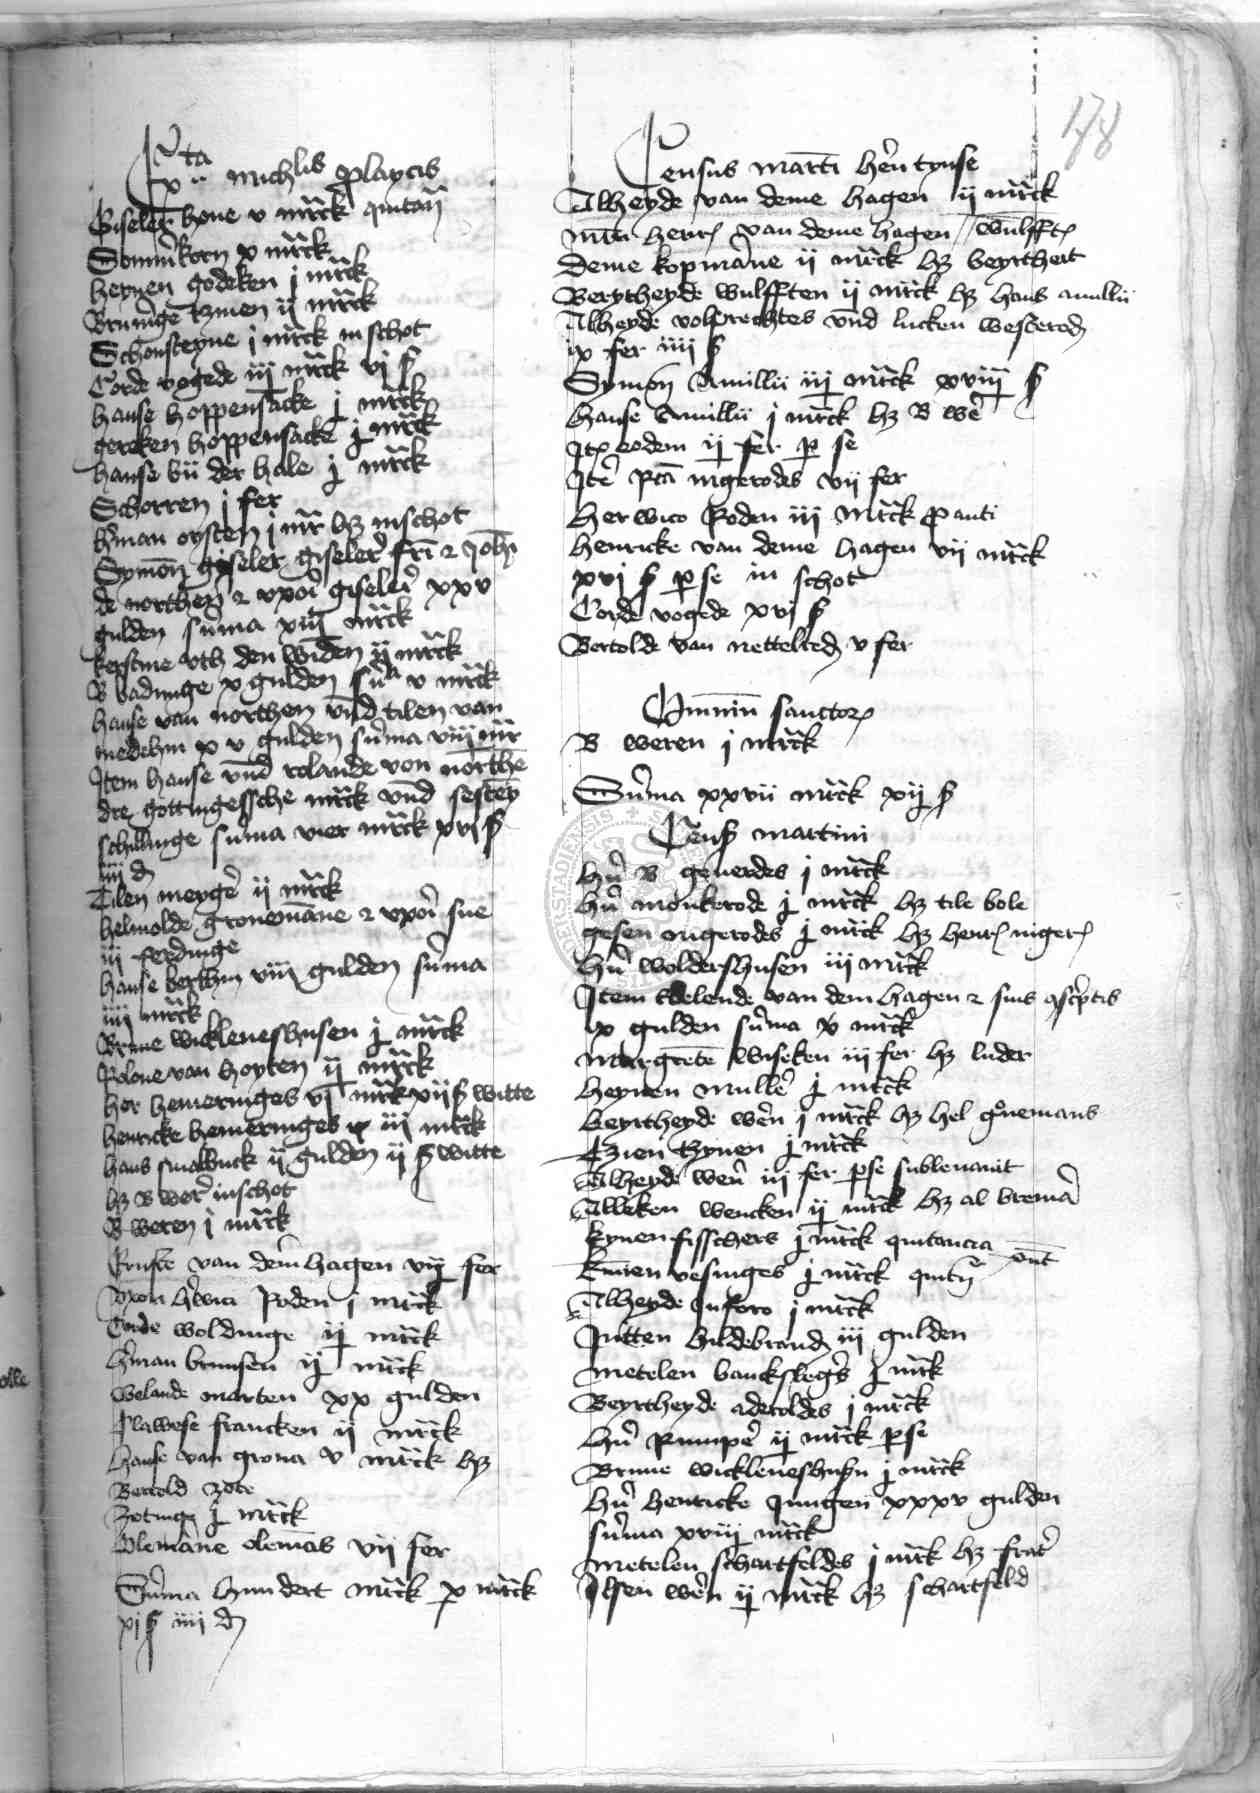 178
Pta
x Mich lis playcis
Giseler hone v mrck quitan
Somerkorn x mrck
heynen godeken j mrck
Bruninge tzmen ij mrck
Schonsteyne j mrck in schot
Corde vogede iij mrck vj ß
hanse hoppensacke j mrck
gereken hoppensacke j mrck
hanse vii der hale j mrck
Schorren j fer
hman orsten j mr hz inschot
Symon giseler giseler fri & Joh
de northen & vxor giseler xxv
gulden suma xiij mrck
kerstine vth den widen ij mrck
B badunge x gulden suma v mrck
hanse van northen vnd tilen van
medehm x v gulden suma viij mr
Item hanse vnd rolande von northe
dre gottingessche mrck vnd sestey
schillinge suma vier mrck xvj ß
iiij d
Tilen meyger ij mrck
helmolde gronemane & vxor sue
iij ferdinge
hanse berkhm viij gulden suma
iiij mrck
Brune wickleneshusen j mrck
Ilselone van hoyten ij mrck
her hemeringes vj mrck xij ß witte
henricke hemeringes x iij mrck
hans smalbuck ij gulden ij ß witte
hz B wer inschot
B weren j mrck
Ernste van dem hagen vij fer
vxori hwici Roden j mrck
Corde woldinge ij mrck
hman brunsen ij mrck
welande marten xx gulden
Clawese francken ij mrck
hanse van grona v mrck hz
Bertold zote
zotinge j mrck
Olemane olemas vij fer
Suma hundert mrck x mrck
xj ß iiij d
Census marti hern tynse
Alheyde van deme hagen ij mrck
mri henr van deme hagen wulfft
deme kopmane ij mrck hz beyrthert
Beyrtheyde wulfften ij mrck hz hans amillii
Alheyde volprechtes vnd lucken westerod
ix fer iiij ß
Symon Amillii iij mrck xviij ß
hanse Amillii j mrck hz B wer
Ite eodem ij fer p se
Ite Pta nigerodes vij fer
Her wico Roden iij mrck p anti
henricke van deme hagen vij mrck
xvj ß p se in schot
Corde vogede xvj ß
Bertolde van nettelred v fer
Omnium sanctor
B weren j mrck
Suma xxvii mrck xij ß
Cens martini
hn B geuerdes j mrck
hn monkerode j mrck hz tile bole
gesen nigerodes j mrck hz henr niger
hn woldershusen iij mrck
Item edelende van dem hagen & suis ascriptis
ix gulden suma v mrck
margrete wiseken iij fer hz luder
heynen muller j mrck
beyrtheyde wern j mrck hz hel gronemans
Tzien tzynen j mrck
Alheyde wern iij fer p se subleuauit
Alheken wencken ij mrck hz al brema
kynen fisschers j mrck quitancia
Kunen vesinges j mrck quit ont
Alheyde In foro j mrck
Jutten hildebrand iij gulden
metelen banckslegers j mrck
Beyrtheyde adeloldes j mrck
hn Rumper ij mrck p se
Brune wickleneshusn j mrck
hn henricke Jungen xxxv gulden
suma xviij mrck
metelen schartfeldes j mrck hz frater
Ilsen wern ij mrck hz schartfeld